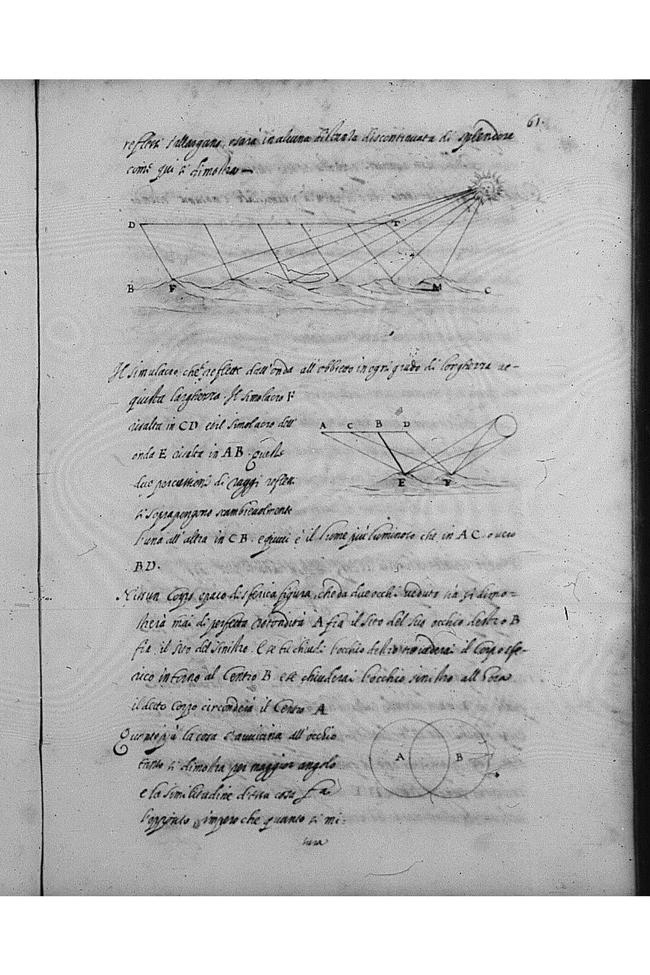 61.
reflessi s'allargano, sara in alcuna distanza discontinuata di splendore
come qui si dimostra
D T
B F M C
Il simulacro che reflette dall'onda all'obbieto in ogni grado di longhezza ac-
quista larghezza. Il simolacro F
risalta in CD et il simolacro dell'
onda E risalta in AB. queste
due percussioni di raggi reflessi
si soprapongono scambievolmente
l'una all'altra in CB. e quivi è il lume piu luminoso che in AC. o vero
BD.
A C B D
E F
Nissun Corpo opaco di sferica figura, che da due occhi veduto sia si dimo-
sterà mai di perfetta rotondità A fia il sito del tuo occhio destro B
fia il sito del sinistro. E se tu chiudi l'occhio destro tu vederai il Corpo sfe-
rico intorno al Centro B e se chiuderai l'occhio sinistro all'hora
il detto Corpo circonderà il Centro A
Quanto più la cosa s'avvicina all'occhio
tanto si dimostra per maggior angolo
e la similitudine d'essa cosa fa
l'opposito impero che quanto si mi-
sura
A B